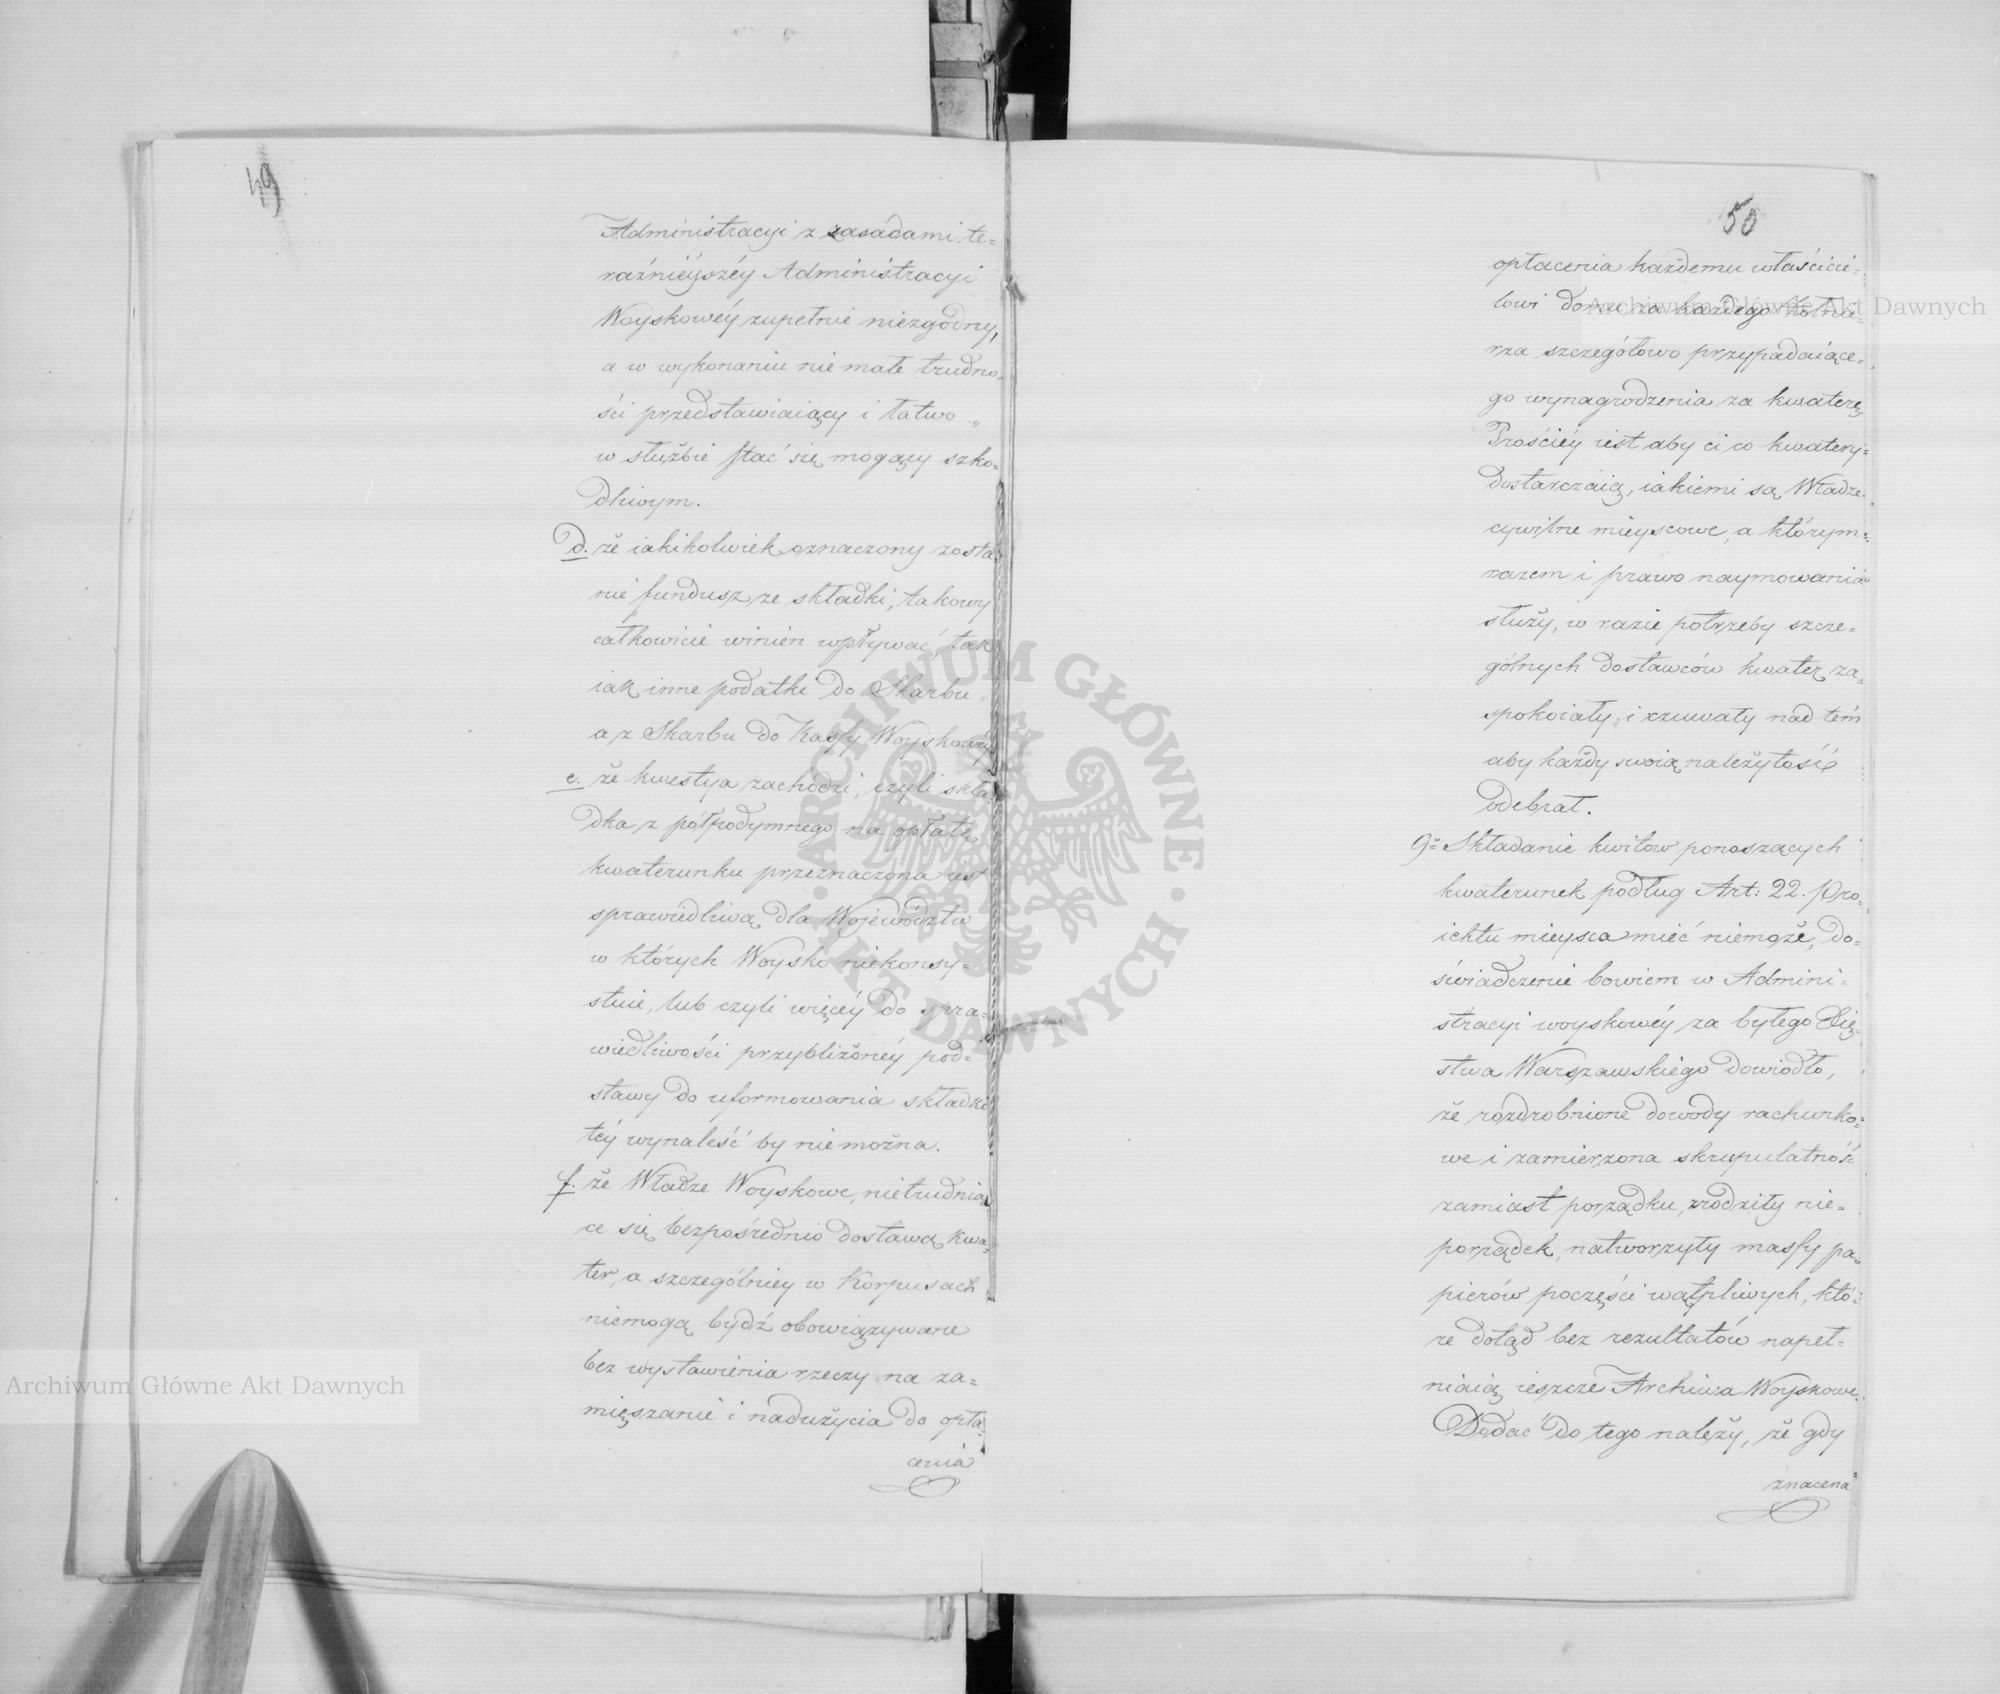 49
Administracyi z zasadami te=
raźnieyszéy Administracyi
Woyskowéy zupełnie niezgodny,
a w wykonaniu nie małe trudno=
ści przedstawiaiący i łatwo
w służbie stać się mogący szko=
dliwym.
d. że iakikolwiek oznaczony zosta=
nie fundusz ze składki, takowy
całkowicie winien wpływać, tak
iak inne podatki do Skarbu
a z Skarbu do Kassy Woyskowéy
e. że kwestya zachodzi, czyli skła=
dka z półpodymnego na opłatę
kwaterunku przeznaczona iest
sprawiedliwą dla Województw
w których Woysko niekonsy=
stuie, lub czyli więcéy do spra=
wiedliwości przybliżonéy pod=
stawy do uformowania składki
téy wynaleść by nie można.
f. że Władze Woyskowe, nietrudnią
ce się bezpośrednio dostawą kwa=
ter, a szczególniey w Korpusach
niemogą bydź obowiązywane
bez wystawienia rzeczy na za=
mięszanie i nadużycia do opła=
cenia
50
opłacenia każdemu właścicie=
lowi domu za każdego żołnie=
rza szczegółowo przypadaiące=
go wynagrodzenia za kwaterę.
Prościéy iest aby ci co kwatery
dostarczaią, iakiemi są Władze
cywilne mieyscowe, a którym
razem i prawo naymowania
służy, w razie potrzeby szcze=
gólnych dostawców kwater za=
spokoiały, i czuwały nad tém
aby każdy swoią należytość
odebrał.
9º Składanie kwitów ponoszących
kwaterunek podług Art: 22. Pro=
iektu mieysca mieć niemoże, do=
świadczenie bowiem w Admini=
stracyi woyskowéy za byłego Xię=
stwa Warszawskiego dowiodło,
że rozdrobnione dowody rachunko=
we i zamierzona skrupulatność
zamiast porządku, zrodziły nie=
porządek, natworzyły massy pa=
pierów poczęści wątpliwych, któ=
re dotąd bez rezultatów napeł=
niaią ieszcze Archiwa Woyskowe.
Dodać do tego należy, że gdy
znacena
Archiwum Główne Akt Dawnych
Archiwum Główne Akt Dawnych
ARCHIWUM GŁÓWNE · AKT DAWNYCH ·